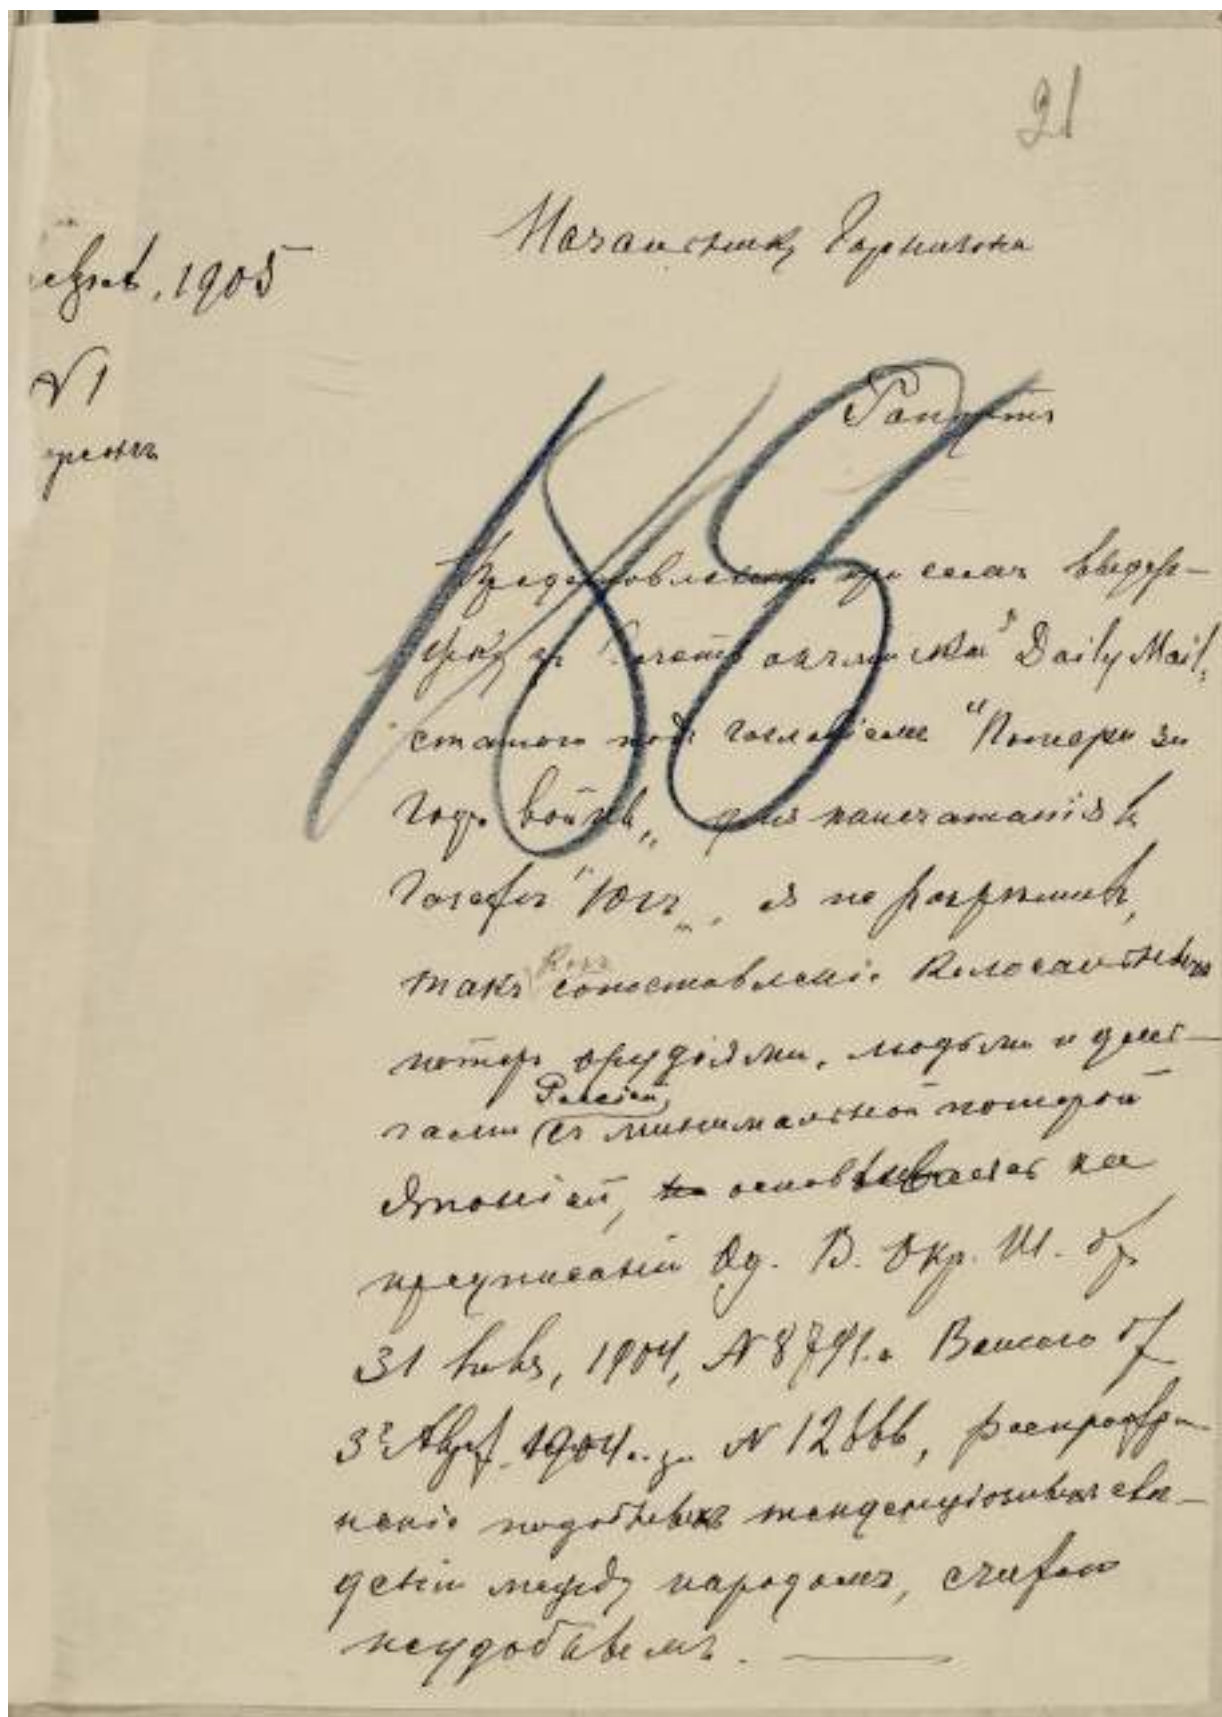 21
Начальнику Гарнизона
1905
№ 1
Рапортъ
188
Представленную при семъ выдер-
жку из газеты английской "Daily Mail,
статью подъ заглавіемъ "Потери за
годъ войны„ для напечатанія въ
газетѣ "Югъ„, я не разрѣшилъ,
такъ какъ сопоставленіе колоссальныхъ
потерь орудіями, людьми и день-
гами Россіи, съ минимальной потерей
Японіей, основываясь на
предписаніи Од. В. Окр. Ш. от
31 1904, № 8791 и Вашего от
3 Авг. 1904 г. за № 12666, распростра-
неніе подобныхъ тенденціозныхъ свѣ-
деній между народомъ, считаю
неудобнымъ.